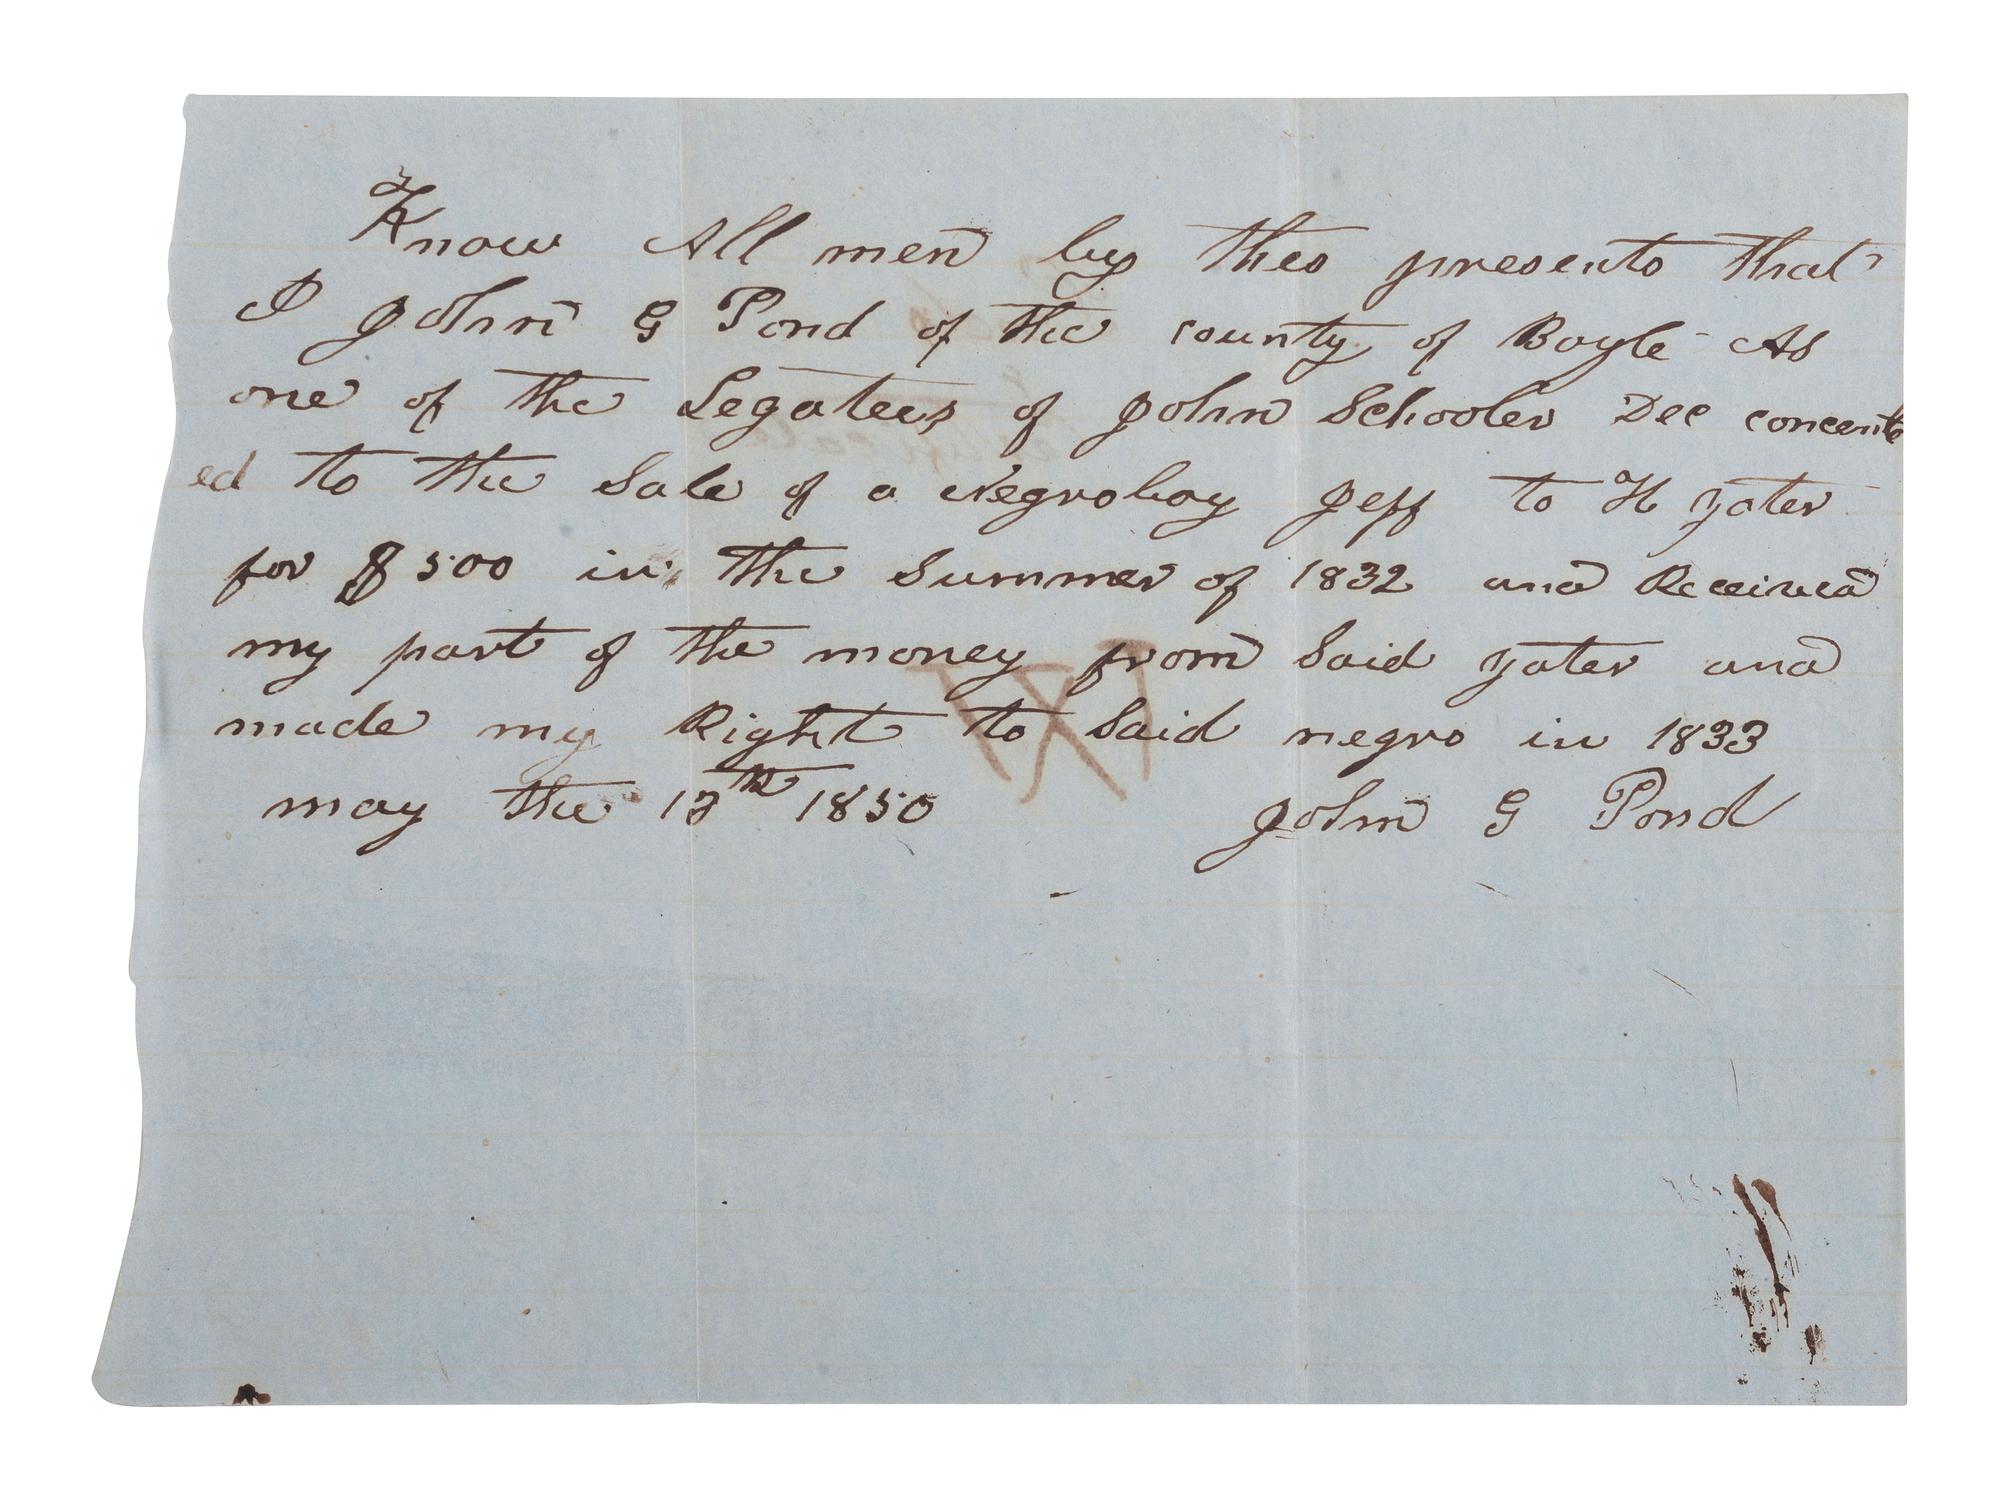 Know All men by thes presents that
I John G Pond of the county of Boyle As
one of the Legatees of John Schooler Dec concent
ed to the Sale of a Negroboy Jeff to H Yater
for $500 in the Summer of 1832 and Received
my part of the money from Said Yater and
made my Right to Said negro in 1833
may the 17th 1850 John G Pond